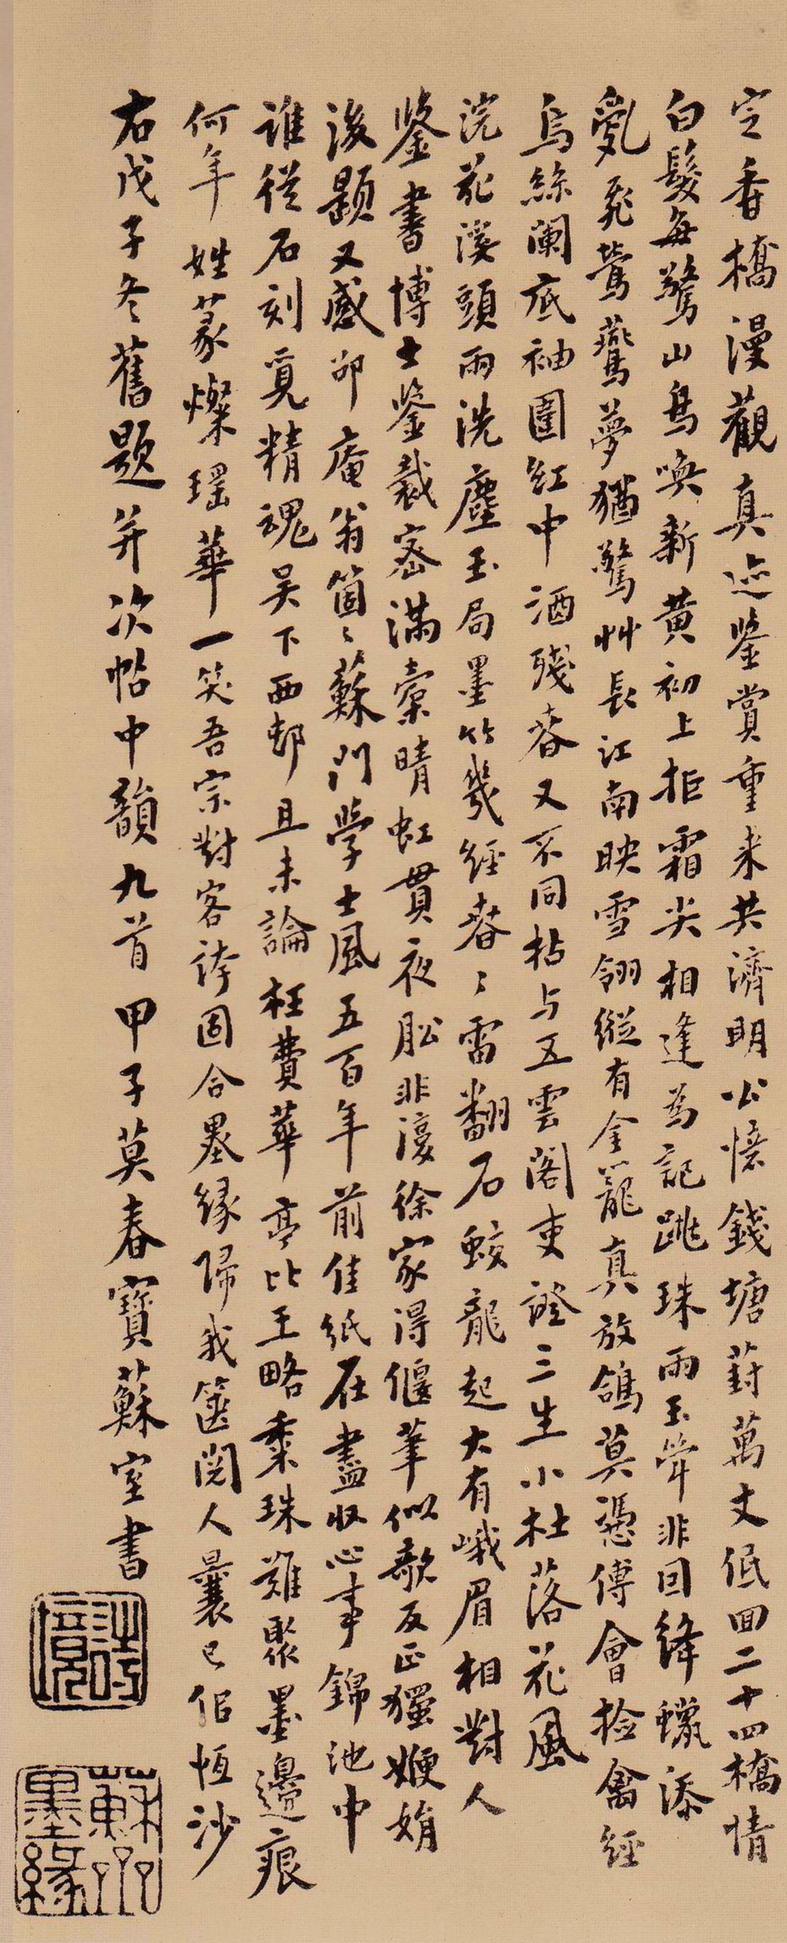 定香橋漫觀真迹鑒賞重来共濟明公憶錢塘葑萬丈低回二十四橋情
白髮每驚山鳥喚新黄初上拒霜尖相逢為記跳珠雨玉聲非回絳蠟添
亂飛鶯鷰夢猶驚艸長江南映雪翎縱有金籠真放鴿莫憑傅會捡禽經
烏絲闌底袖圍紅中酒殘春又不同拈与五雲閣吏證三生小杜落花風
浣花溪頭雨洗塵玉局墨竹幾經春〻雷翻石蛟龍起大有峨眉相對人
鑒書博士鑒裁密滿橐晴虹貫夜舩非復徐家得偃筆似欹反正獨姬娟
後題又感邵庵翁箇〻蘇門學士風五百年前佳紙在盡收心事錦池中
誰從石刻覓精魂吴下西邨且未論枉費華亭比王略黍珠難聚墨邊痕
何年姓篆燦瑶華一笑吾宗對客誇固合墨緣歸我篋閱人曩已佀恆沙
右戊子冬舊題并次帖中韻九首甲子莫春寶蘇室書
詩境
蘇齋墨緣